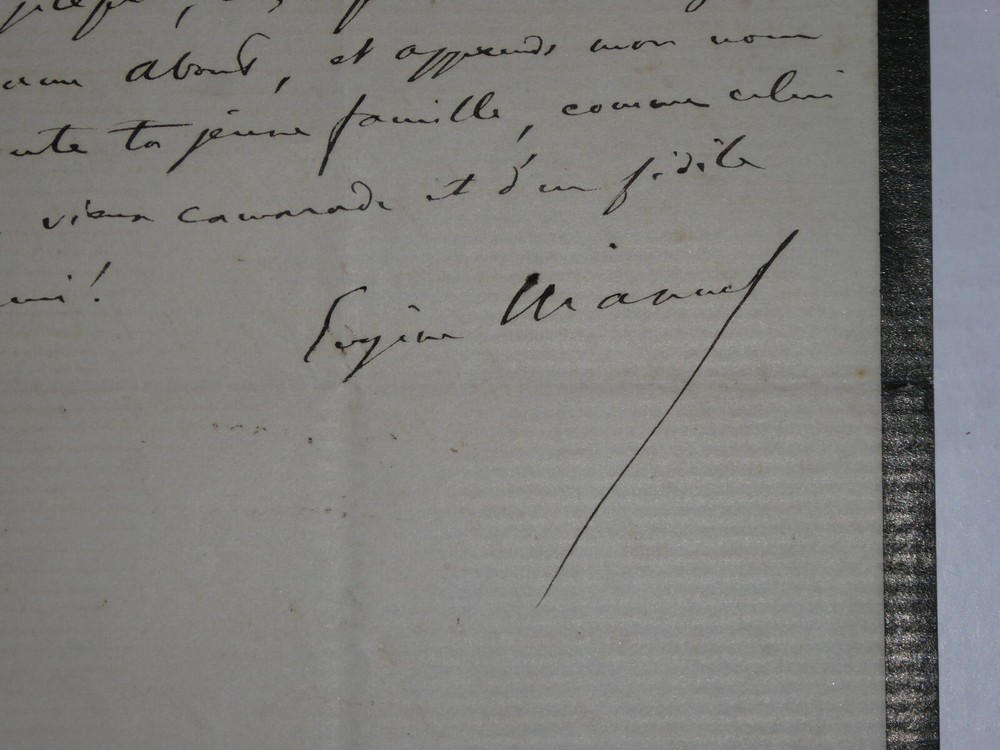 About, et apprends mon nom
ta jeune famille, comme celui
vieux camarade et d'un fidèle
ami!
Eugène Manuel